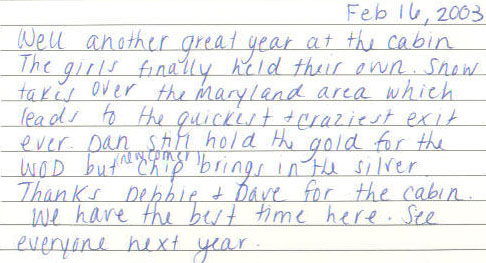 Feb 16, 2003
Well another great year at the cabin
The girls finally held their own. Snow
takes over the maryland area which
leads to the quickest + craziest exit
ever. Dan still hold the gold for the
WOD but "newcomer" Chip brings in the silver.
Thanks Debbie + Dave for the cabin.
We have the best time here. See
everyone next year.